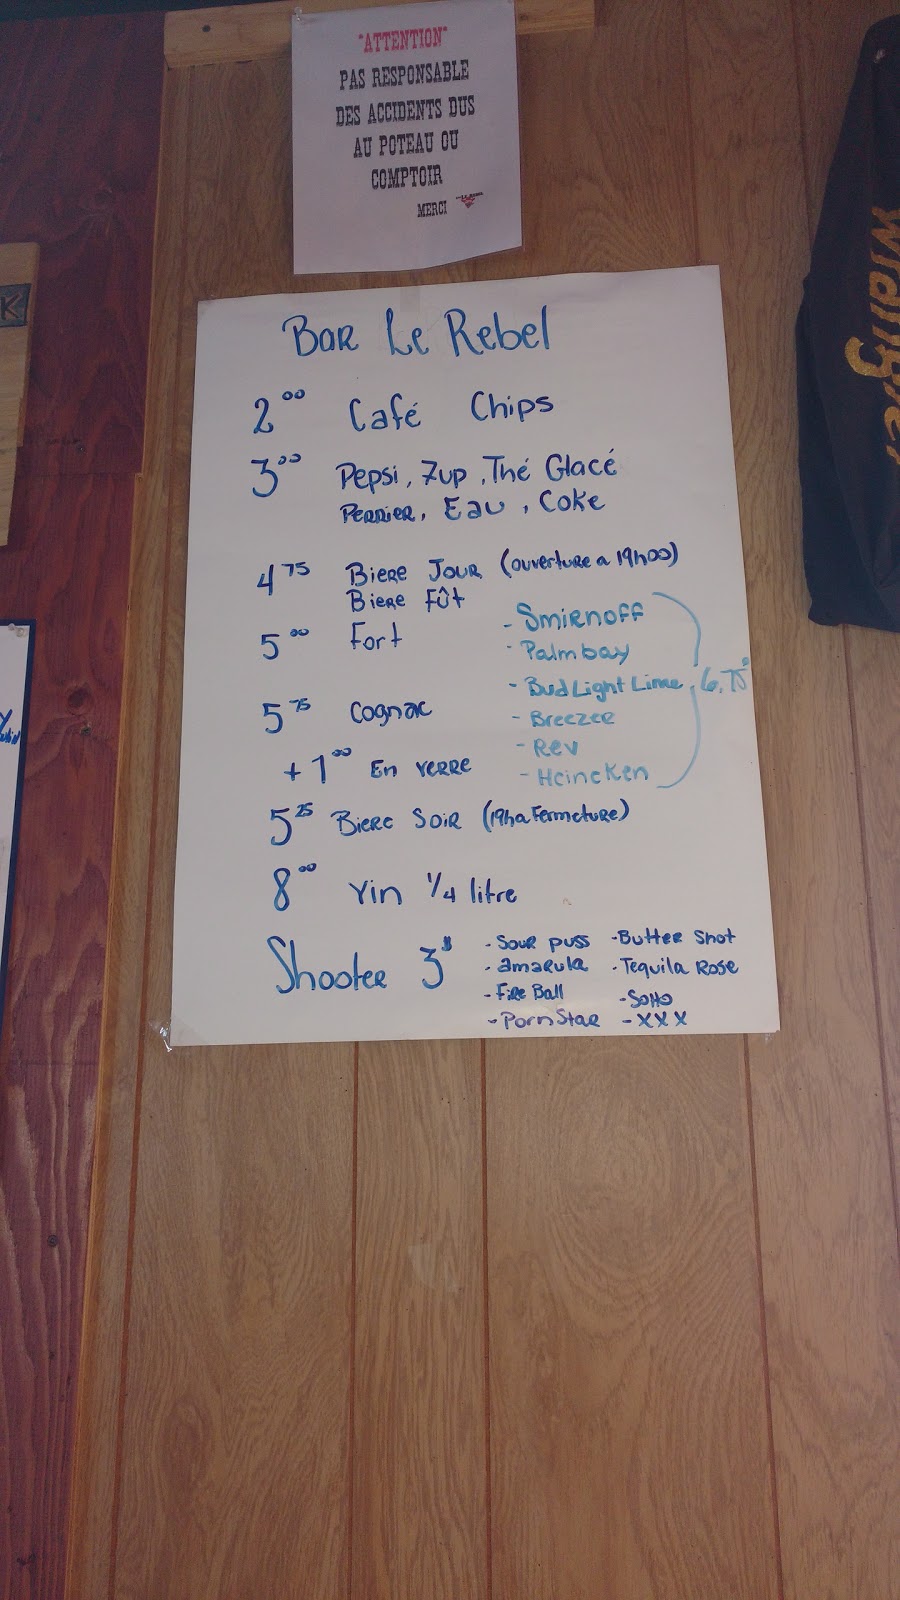 "ATTENTION"
PAS RESPONSABLE
DES ACCIDENTS DUS
AU POTEAU OU
COMPTOIR
MERCI
K
Wrangler
Bar Le Rebel
2.00 Café Chips
3.00 Pepsi, 7up, Thé Glacé
Perrier, Eau, Coke
4.75 Biere Jour (ouverture a 19h00)
Biere Fût
5.00 Fort
- Smirnoff
- Palmbay
- Bud Light Lime 6,75$
- Breezer
- Rev
- Heineken
5.75 Cognac
+ 1.00 En verre
5.25 Biere Soir (19h a Fermeture)
8.00 Vin 1/4 litre
Shooter 3$
- Sour puss - Butter Shot
- amarula - Tequila Rose
- Fire Ball - Soho
- Porn Star - XXX